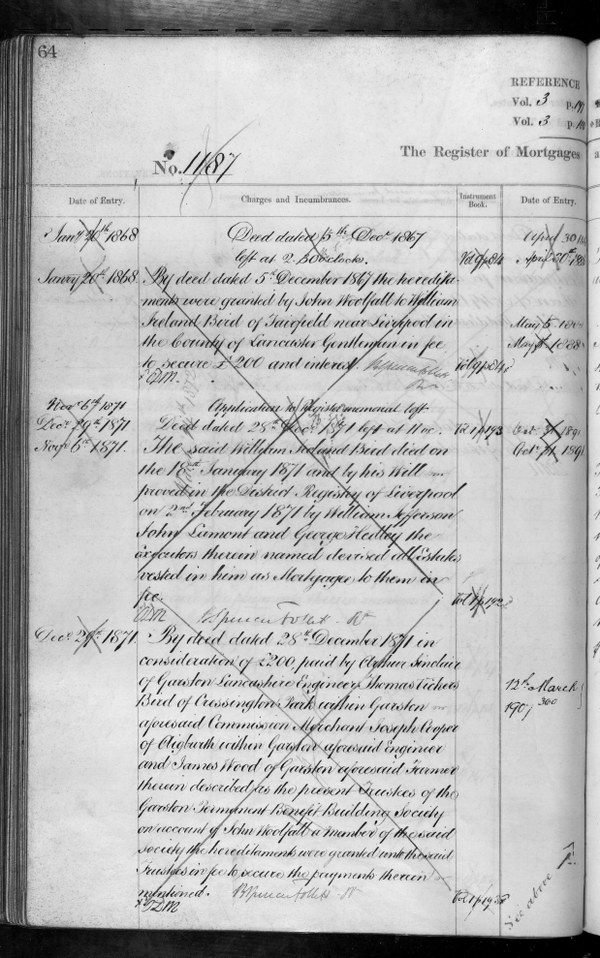 64
REFERENCE
Vol. 3 p.
Vol. 3 p.
No. 1187
The Register of Mortgages
Date of Entry.
Charges and Incumbrances.
Instrument Book.
Date of Entry.
Jany 20th 1868
Deed dated 5th Decr 1867
left at 2 Oclocke.
Vol 9 p 84
April 30
April 20th 18
Janry 20th 1868
By deed dated 5th December 1867 the heredita-
ments were granted by John Woolfall to William
Ireland Bird of Fairfield near Liverpool in
the County of Lancaster Gentleman in fee
to secure £200 and interest.
Vol 9 p 84
May
May 1888
Novr 6th 1871
Application to Register memorial left
Decr 29th 1871
Deed dated 28th Decr 1871 left at 11 oc.
Vol 1 p 193
Oct 189
Novr 6th 1871.
The said William Ireland Bird died on
Oct 189
the 18th January 1871 and by his Will
proved in the District Registry of Liverpool
on 2nd February 1871 by William Jefferson
John Lamont and George Hedley the
executors therein named devised all Estates
vested in him as Mortgagee to them in
fee.
Vol 1 p 192
B Spencer Follett
Decr 29th 1871.
By deed dated 28th December 1871 in
consideration of £200 paid by Arthur Sinclair
of Garston Lancashire Engineer Thomas Vickers
Bird of Cressington Park within Garston
aforesaid Commission Merchant Joseph Cooper
of Aigburth within Garston aforesaid Engineer
and James Wood of Garston aforesaid Farmer
therein described as the present Trustees of the
Garston Permanent Benefit Building Society
on account of John Woolfall a member of the said
Society the hereditaments were granted unto the said
Trustees in fee to secure the payments therein
mentioned.
B Spencer Follett
Vol 1 p 193
12th March
1907
See above